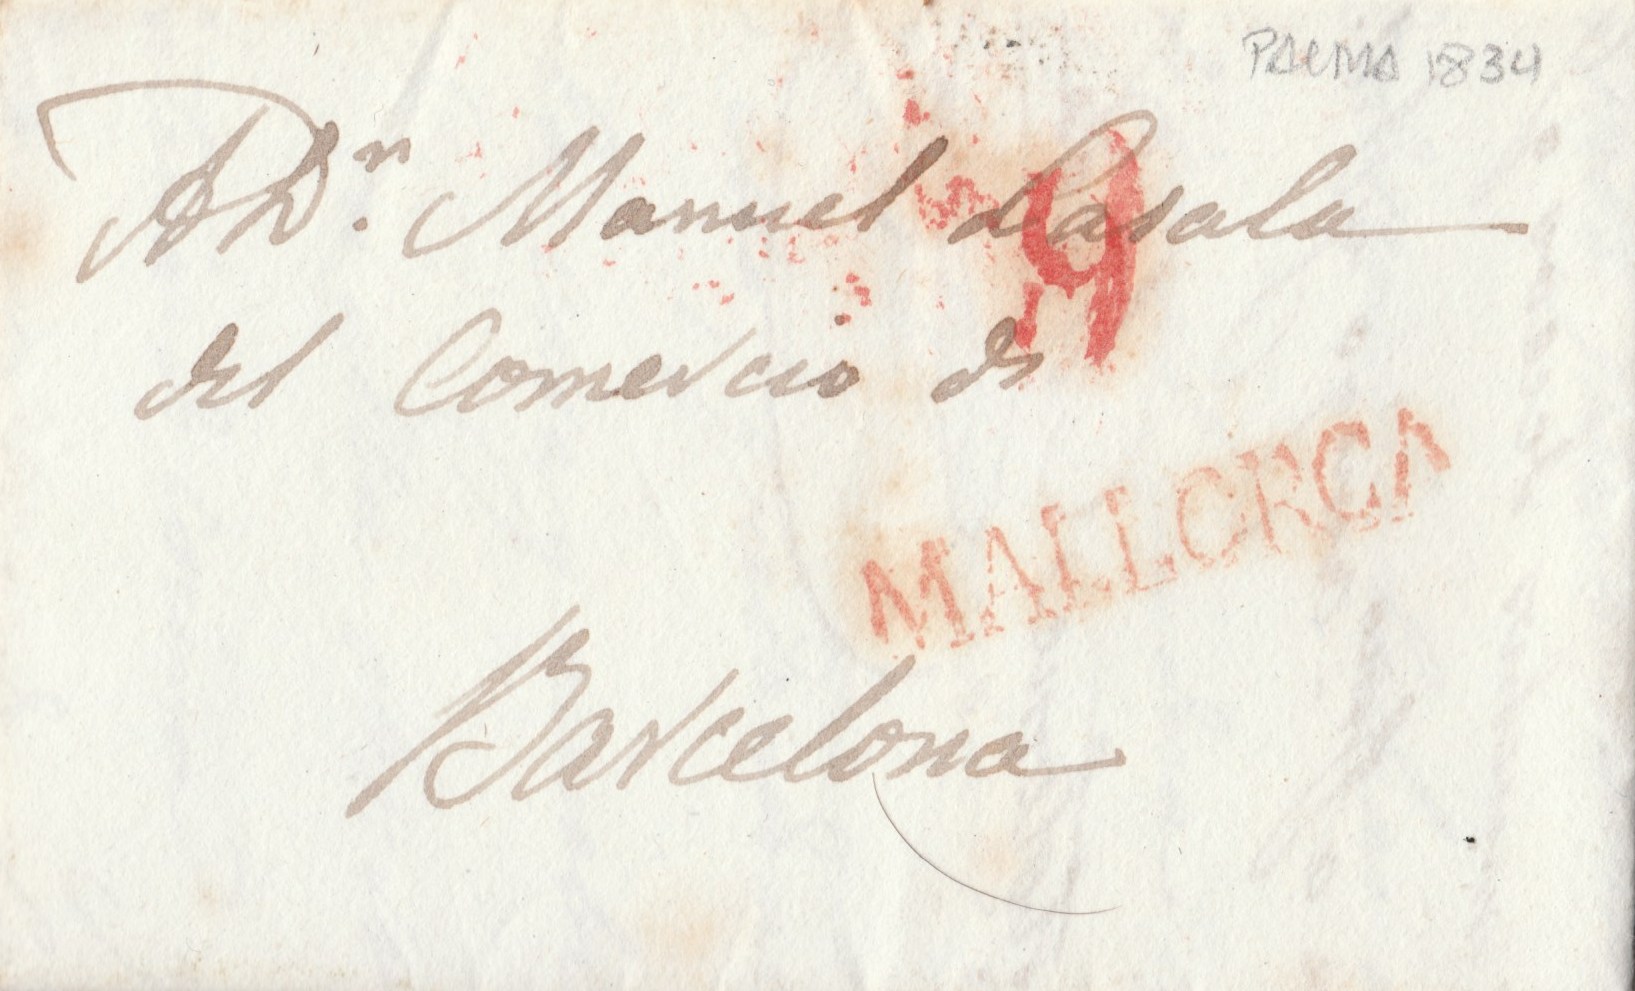 PALMA 1834
A Dn. Manuel Casala
9
del Comercio de
MALLORCA
Barcelona